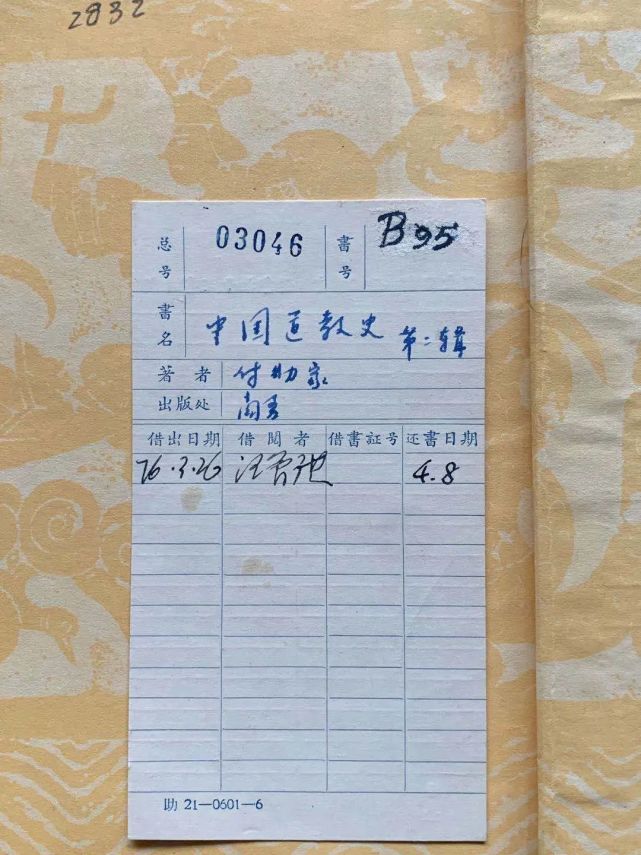 2832
总号 03046 書号 B95
書名 中国道教史 第二辑
著者 付助家
出版处
借出日期 借閱者 借書証号 还書日期
76.3.26 4.8
助 21—0601—6